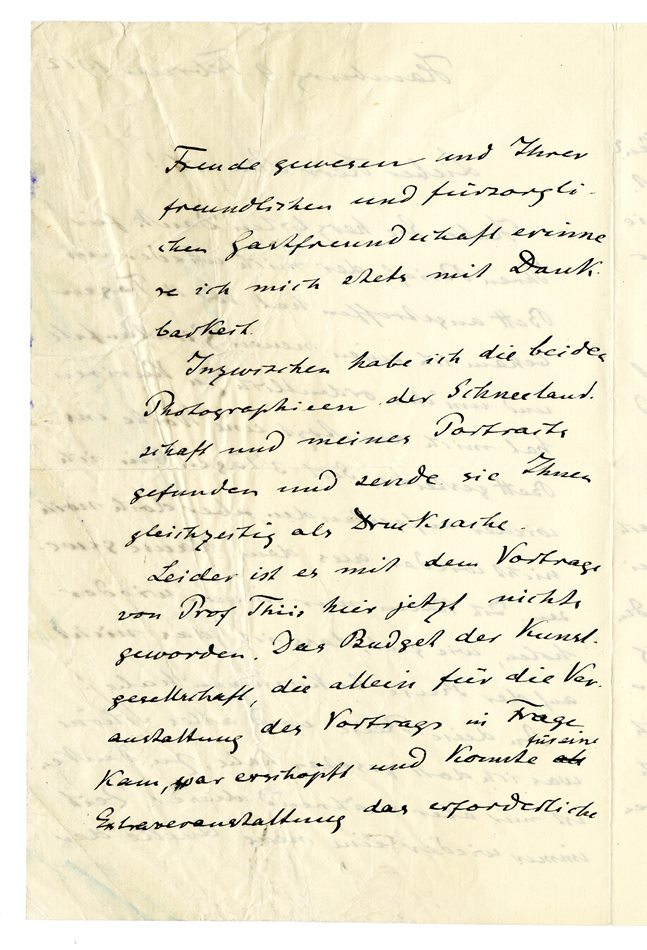 Freude gewesen und Ihrer
freundlichen und fürsorgli-
chen Gastfreundschaft erinne
re ich mich stets mit Dank-
barkeit.
Inzwischen habe ich die beiden
Photographieen der Schneeland-
schaft und meines Portraits
gefunden und sende sie Ihnen
gleichzeitig als Drucksache.
Leider ist es mit dem Vortrage
von Prof Thiis hier jetzt nichts
geworden. Das Budget der Kunst-
gesellschaft, die allein für die Ver-
anstaltung des Vortrags in Frage
für eine
kam, war erschöpft und konnte als
Extraveranstaltung das erforderliche